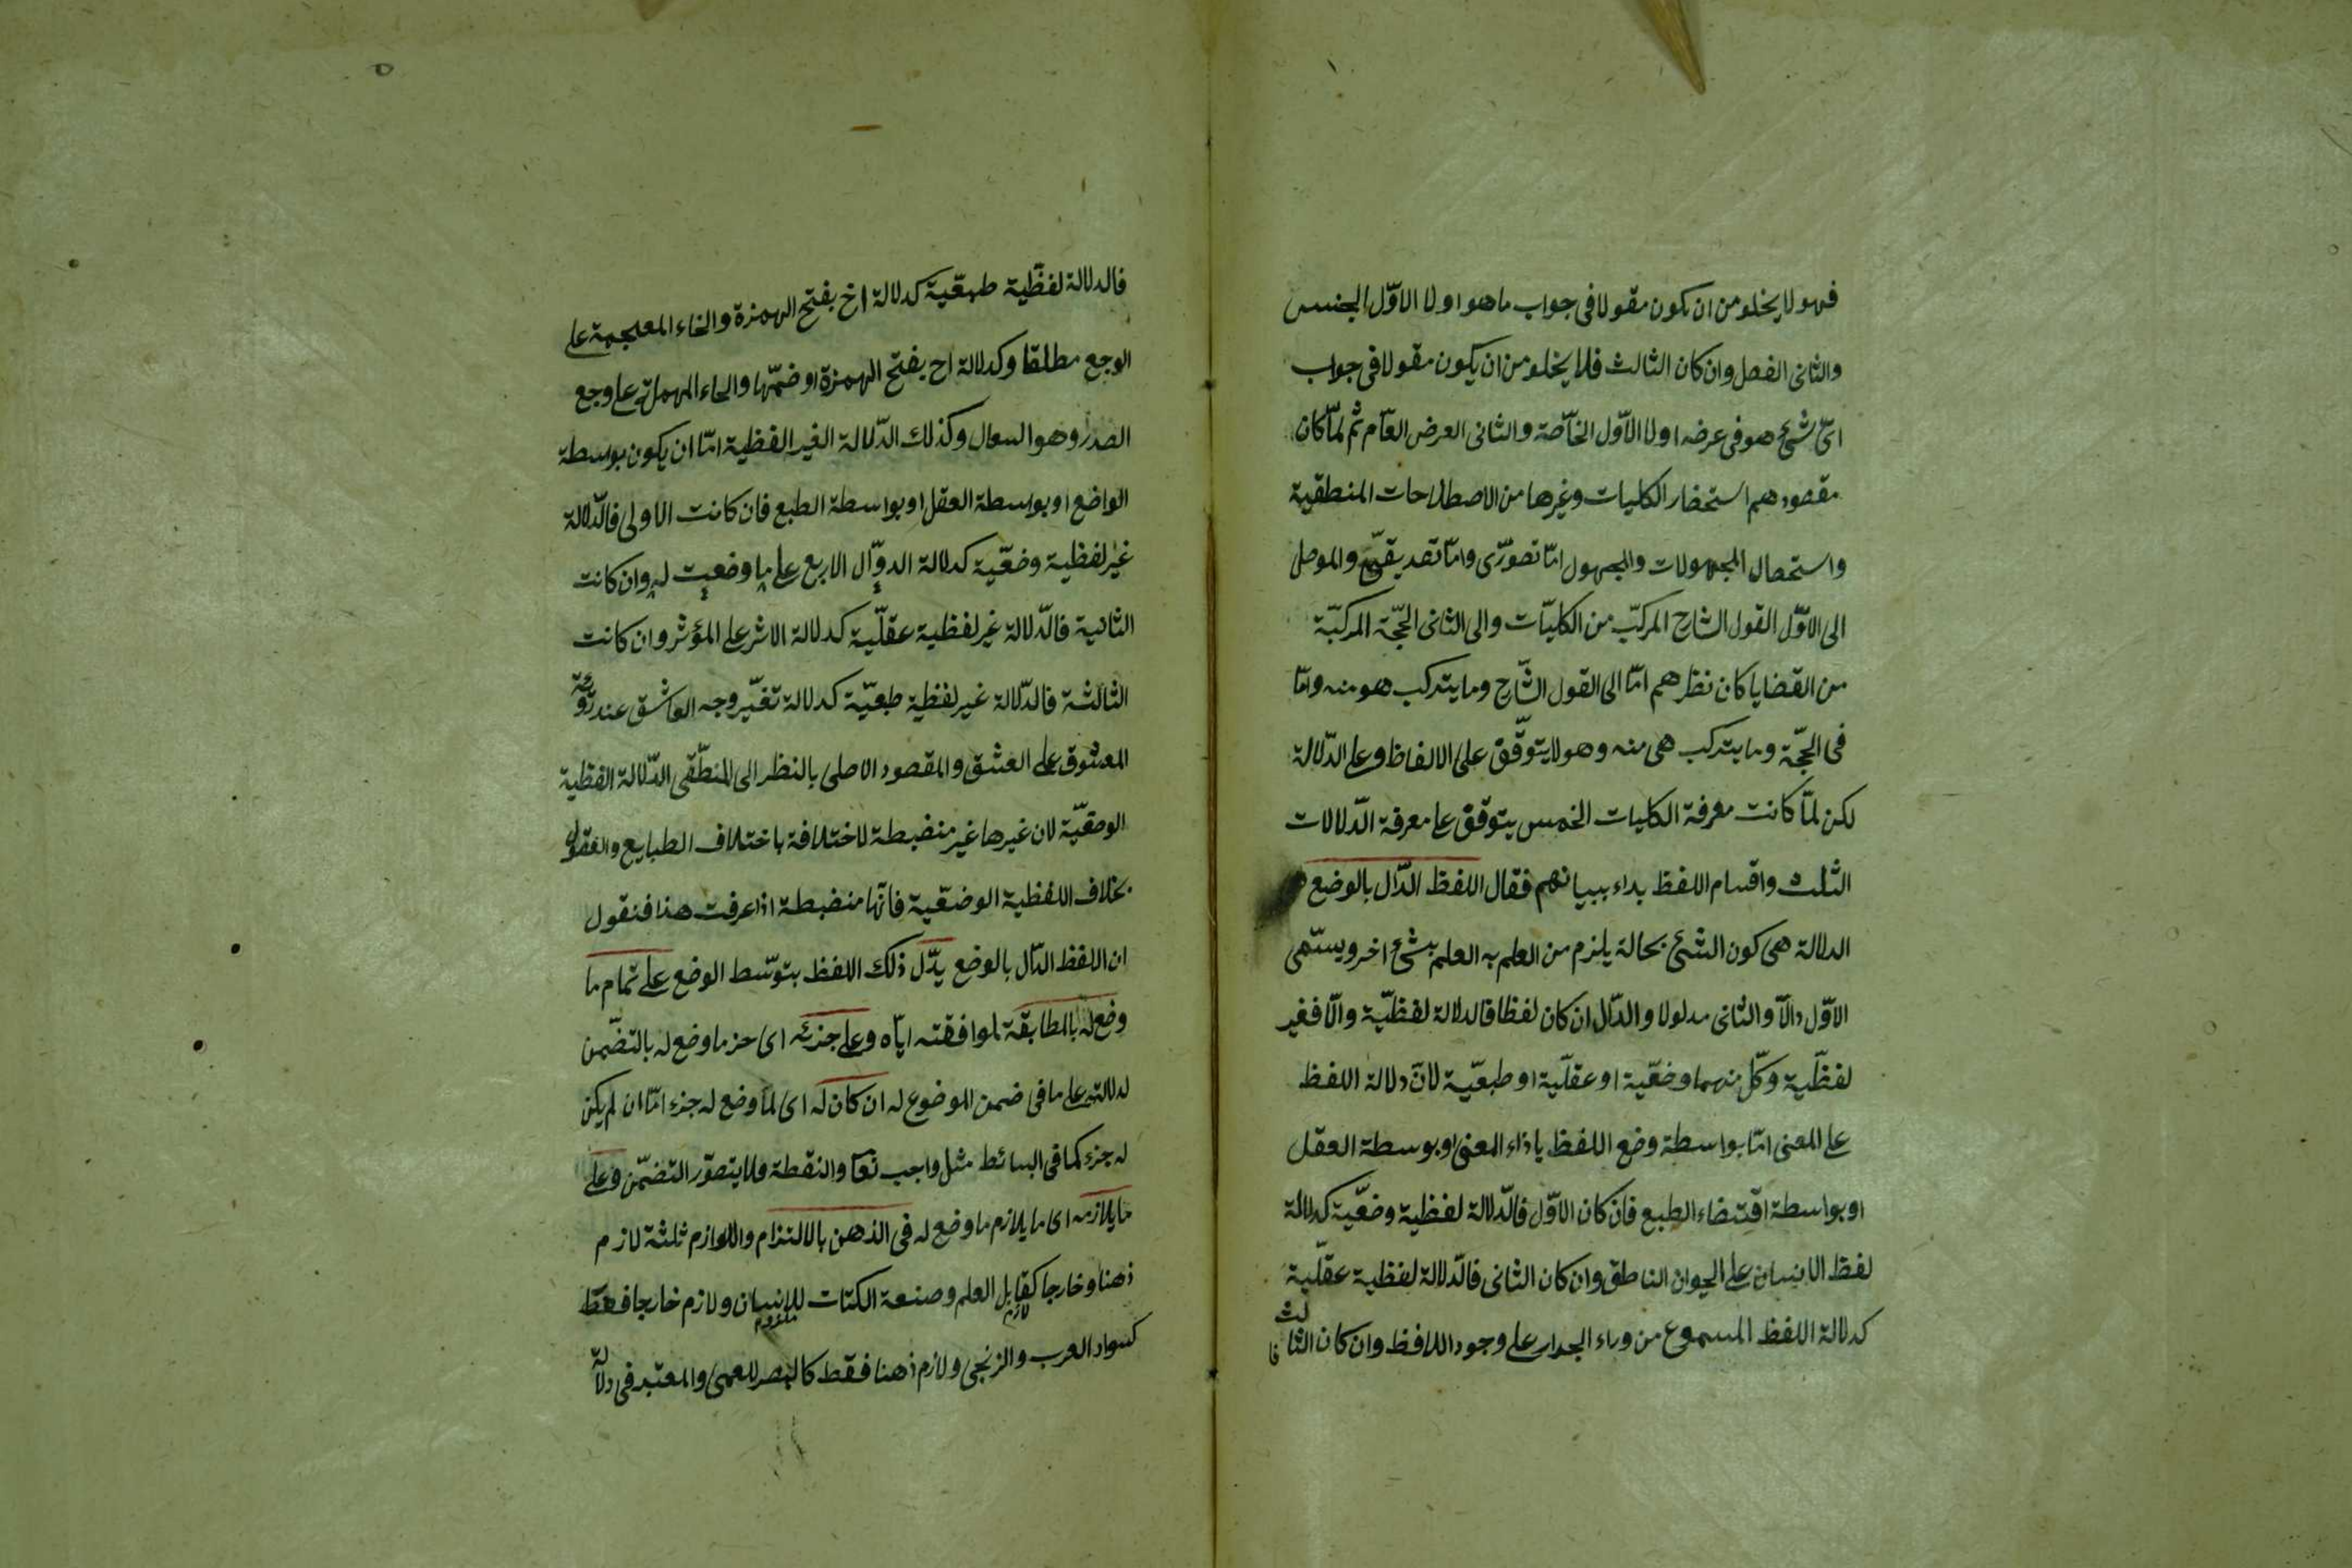 فهو لا يخلو من ان يكون مقولا فى جواب ما هو اولا الاوّل الجنس
والثانى الفصل وان كان الثالث فلا يخلو من ان يكون مقولا فى جواب
اىّ شئ هو فى عرضه اولا الاوّل الخاصّة والثانى العرض العامّ ثم لمّا كان
مقصودهم استحضار الكليات وغيرها من الاصطلاحات المنطقية
واستحصال المجهولات والمجهول امّا تصورّى وامّا تصديقىّ والموصل
الى الاوّل القول الشارح المركّب من الكليّات والى الثانى الحجّة المركبّة
من القضايا كان نظرهم امّا الى القول الشّارح وما يتركب هو منه وامّا
فى الحجّة وما يتركب هى منه وهو لا يتوقّف على الالفاظ وعلى الدّلالة
لكن لمّا كانت معرفة الكليات الخمس يتوقف على معرفة الدّلالات
الثلث واقسام اللفظ بداء ببيانهم فقال اللفظ الدّال بالوضع
الدلالة هى كون الشئ بحالة يلزم من العلم به العلم بشئ اخر ويسّمى
الاوّل دالّا والثانى مدلولا والدّال ان كان لفظا فالدلالة لفظيّة والّا فغير
لفظيّة وكلّ منهما وضعّية او عقلّية او طبعّية لانّ دلالة اللفظ
على المعنى امّا بواسطة وضع اللفظ باذاء المعنى او بوسطة العقل
او بواسطة اقتضاء الطبع فان كان الاوّل فالدّلالة لفظية وضعّية كدلالة
لفظ الانسان على الحيوان الناطق وان كان الثانى فالدّلالة لفظية عقلّية
كدلالة اللفظ المسموع من وراء الجدار على وجود اللافظ وان كان الثالث
فا
فالدلالة لفظّية طبعّية كدلالة اخ بفتح الهمزة والخاء المعجمة على
الوجع مطلقا وكدلالة اح بفتح الهمزة او ضمّها والحاء المهملة على وجع
الصدر وهو السعال وكذلك الدّلالة الغير الفظية امّا ان يكون بوسطة
الواضع او بواسطة العقل او بواسطة الطبع فان كانت الاولى فالدّلالة
غير لفظية وضعّية كدلالة الدوّال الاربع على ما وضعت له وان كانت
الثانية فالدّلالة غير لفظية عقلّية كدلالة الاثر على المؤثر وان كانت
الثالثة فالدّلالة غير لفظية طبعيّة كدلالة تغيّر وجه العاشق عند رؤية
المعشوق على العشق والمقصود الاصلى بالنظر الى المنطقى الدّلالة الفظية
الوضعّية لان غيرها غير منضبطة لاختلافة باختلاف الطبايع والعقول
بخلاف اللفظية الوضعّية فانّها منضبطة اذا عرفت هذا فنقول
ان اللفظ الدّال بالوضع يدّل ذلك اللفظ بتوسّط الوضع على تمام ما
وضع له بالمطابقة لموافقته ايّاه وعلى جزئه اى جزء ما وضع له بالتضّمن
لدلالته على ما فى ضمن الموضوع له ان كان له اى لما وضع له جزء امّا ان لم يكن
له جزء كما فى البسائط مثل واجب تعا والنقطة فلا يتصوّر التضمّن وعلى
ما يلازمه اى ما يلازم ما وضع له فى الذهن بالالتزام واللوازم ثلثة لازم
ذهنا وخارجا كقابل العلم وصنعة الكتات للانسان ولازم خارجا فقط
لازم ملزوم
كسواد العرب والزنجى ولازم ذهنا فقط كالبصر للعمى والمعتبر فى دلالة